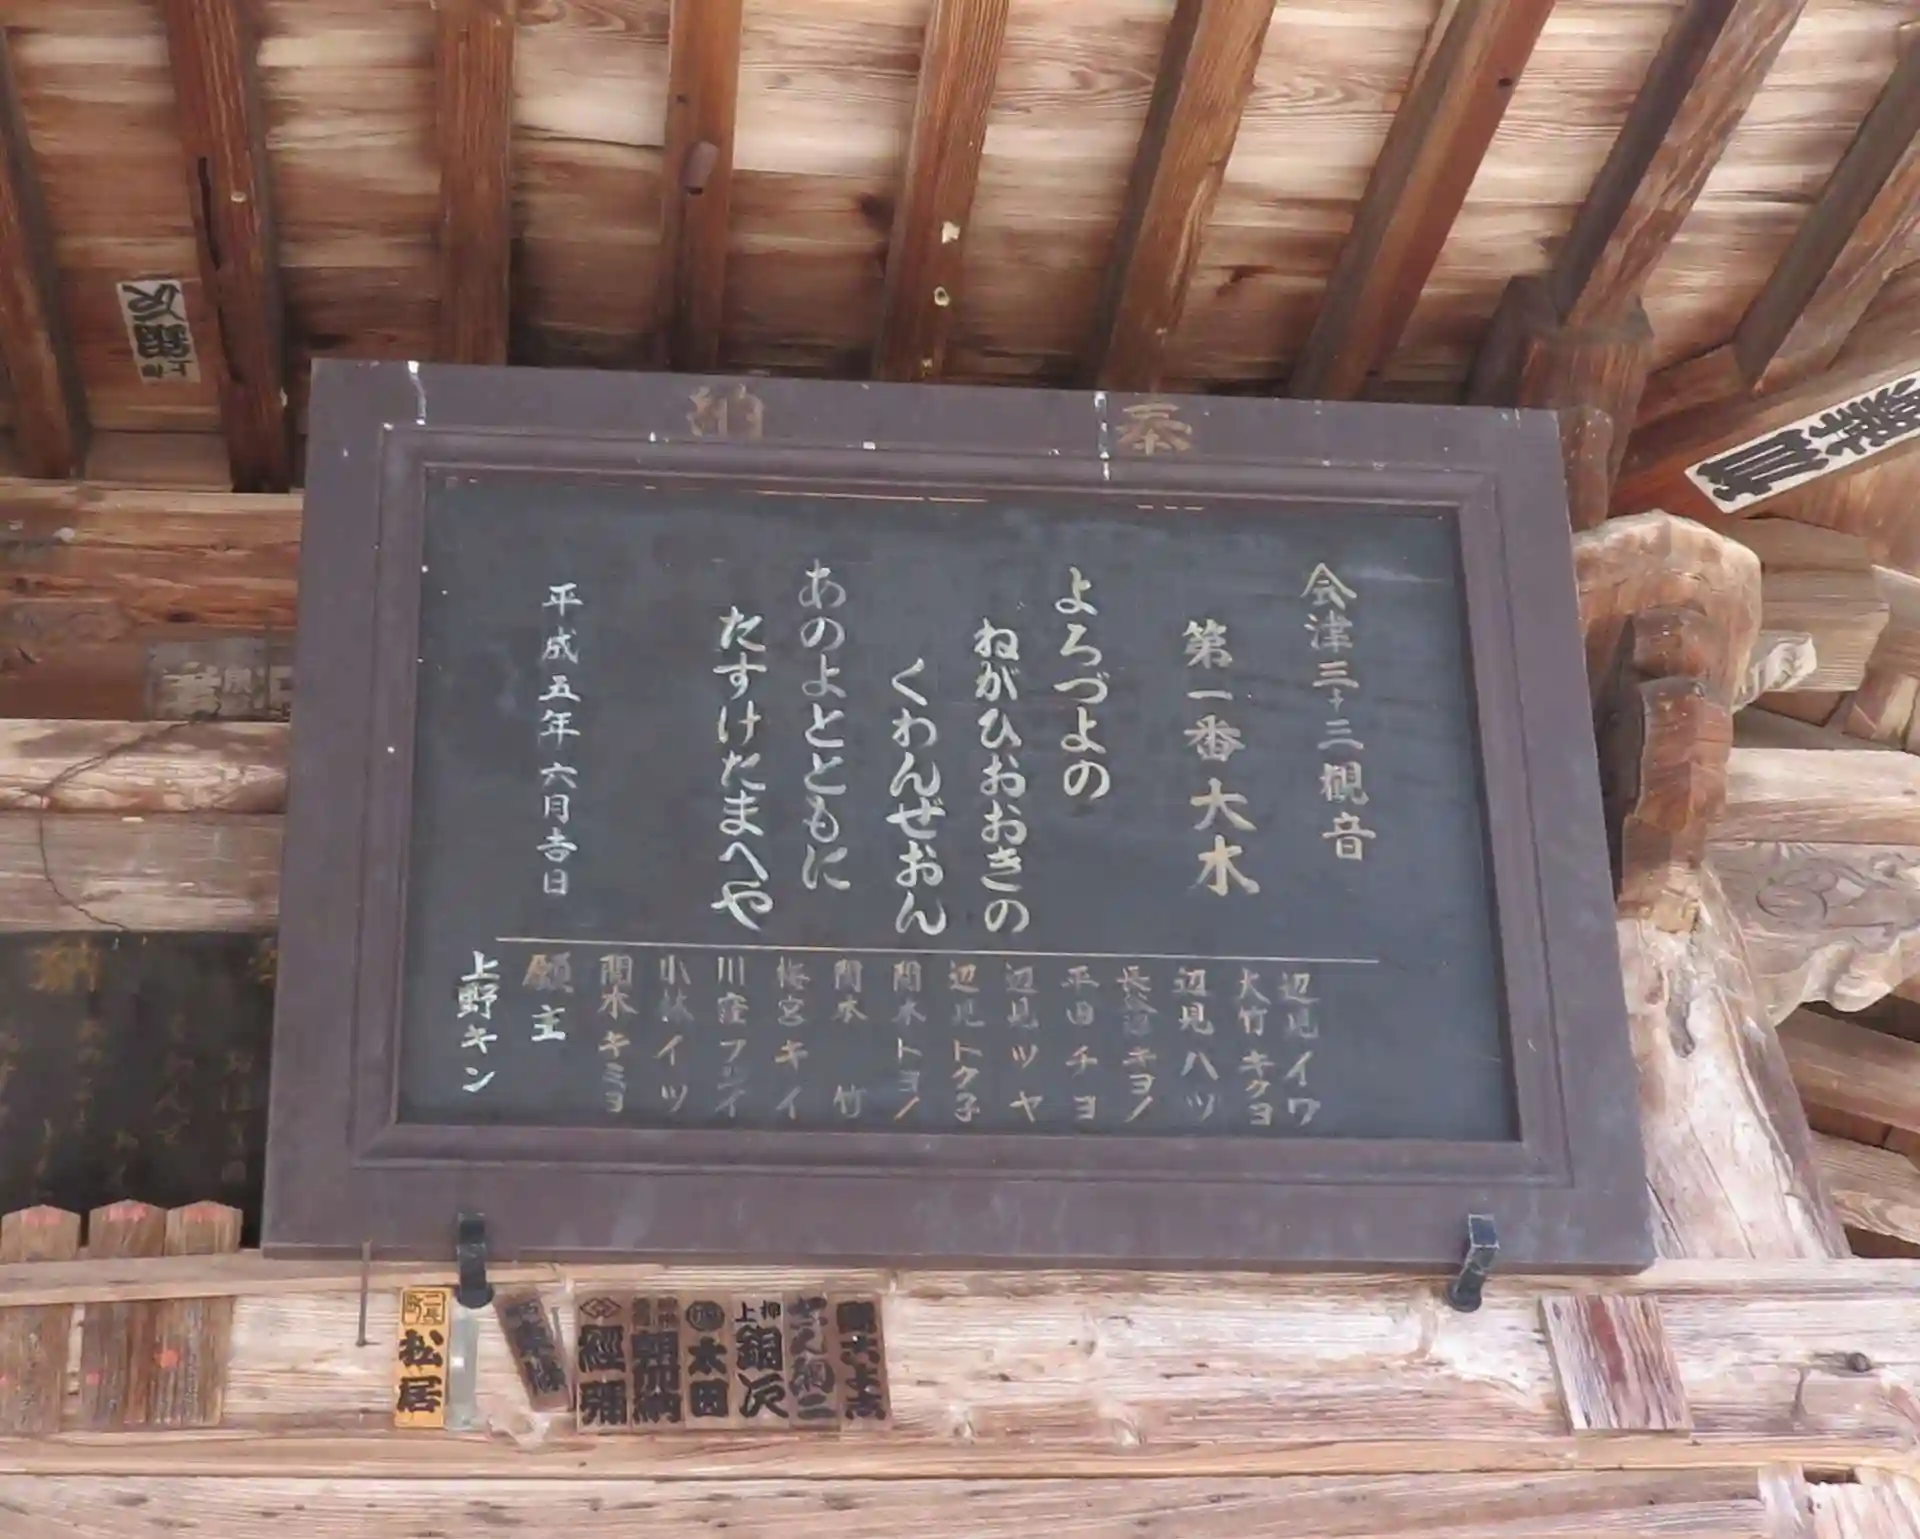 奉納
会津三十三観音
第一番大木
よろづよの
ねがひおおきの
くわんぜおん
あのよとともに
たすけたまへや
平成五年六月吉日
辺見イワ
大竹キクヨ
辺見ハツ
長谷沼キヨノ
平田チヨ
辺見ツヤ
辺見トク子
関本トヨノ
関本竹
梅宮キイ
川窪フジイ
小林イツ
関本キミヨ
願主
上野キン
松居
太田
銅次